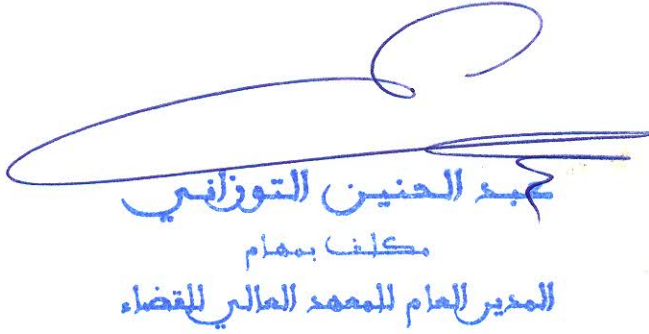 عبد الحنين التوزاني
مكلف بمهام
المدير العام للمعهد العالي للقضاء